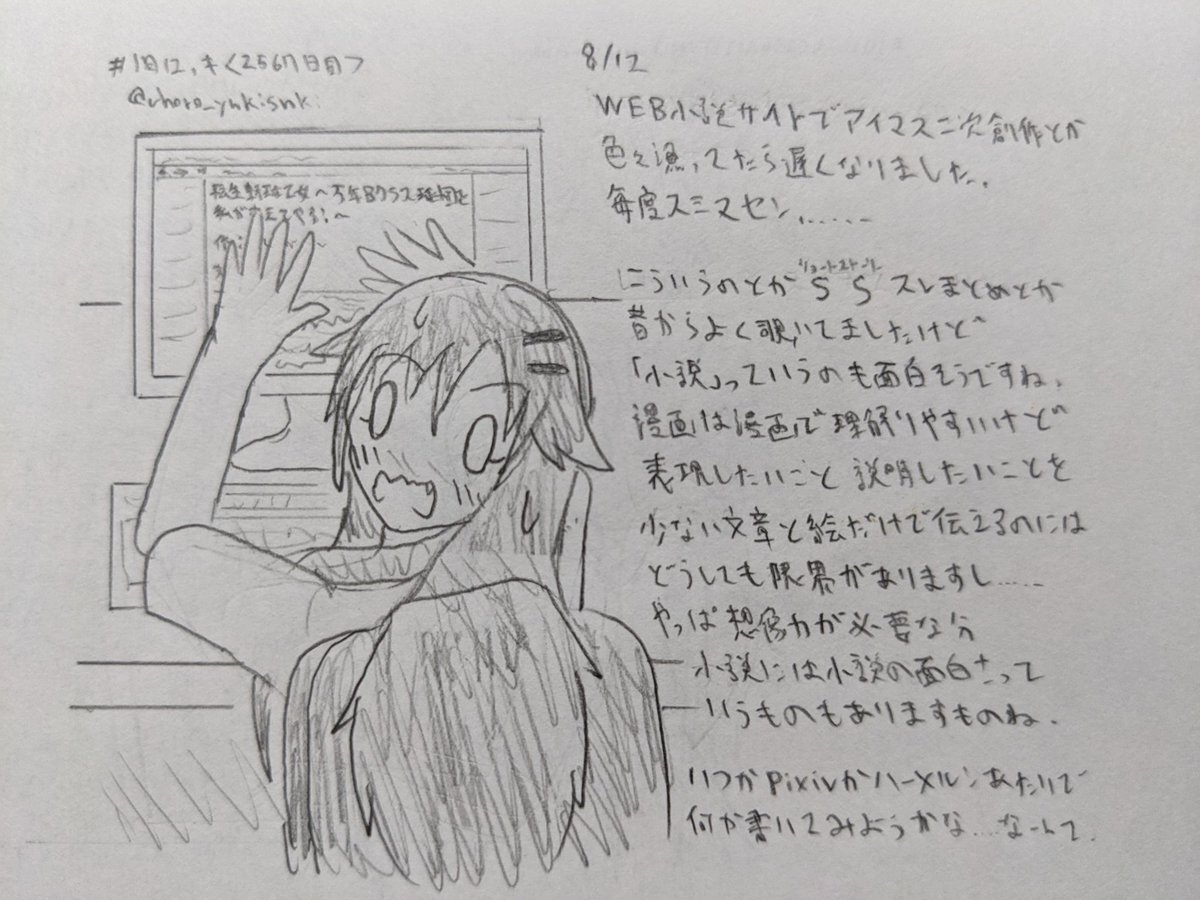 8/12
WEB小説サイトでアイマス二次創作とか
色々漁ってたら遅くなりました。
毎度スミマセン......
こういうのとかSSスレまとめとか
昔からよく覗いてましたけど
「小説」っていうのも面白そうですね。
漫画は漫画で理解りやすいけど
表現したいこと 説明したいことを
少ない文章と絵だけで伝えるのには
どうしても限界がありますし......
やっぱ想像力が必要な分
小説には小説の面白さって
いうものもありますものね.
いつかpixivかハーメルンあたりで
何か書いてみようかな....なーんて.